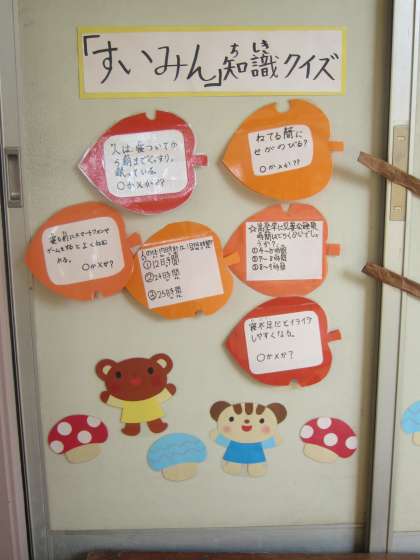 「すいみん」知識クイズ
ちしき
人は、寝ついてか
ら朝までぐっすり
眠っている。
○か×か??
ねてる間に
せがのびる?
○か×か??
寝る前にスマートフォンや
ゲームを
とよくねむ
れる。
○か×か?
人の体内時計は、1日何時間?
①12時間
②24時間
③25時間
☆高学年に必要な睡眠
時間はどらくらいでしょ
うか?
②7~8時間
③8~9時間
寝不足だとイライラ
しやすくなる。
○か×か?